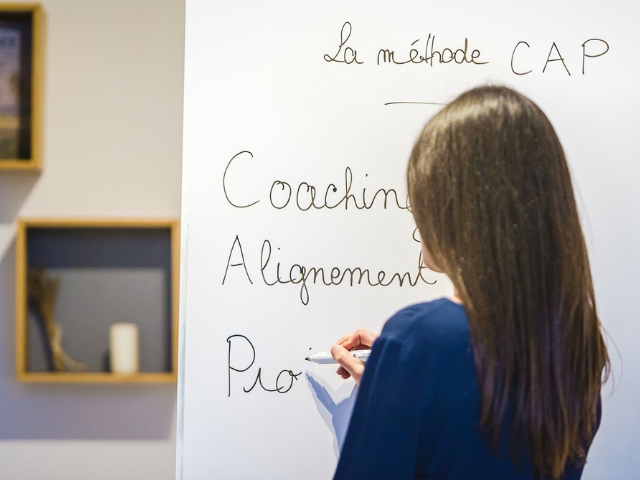 La méthode CAP
Coaching
Alignement
Pro